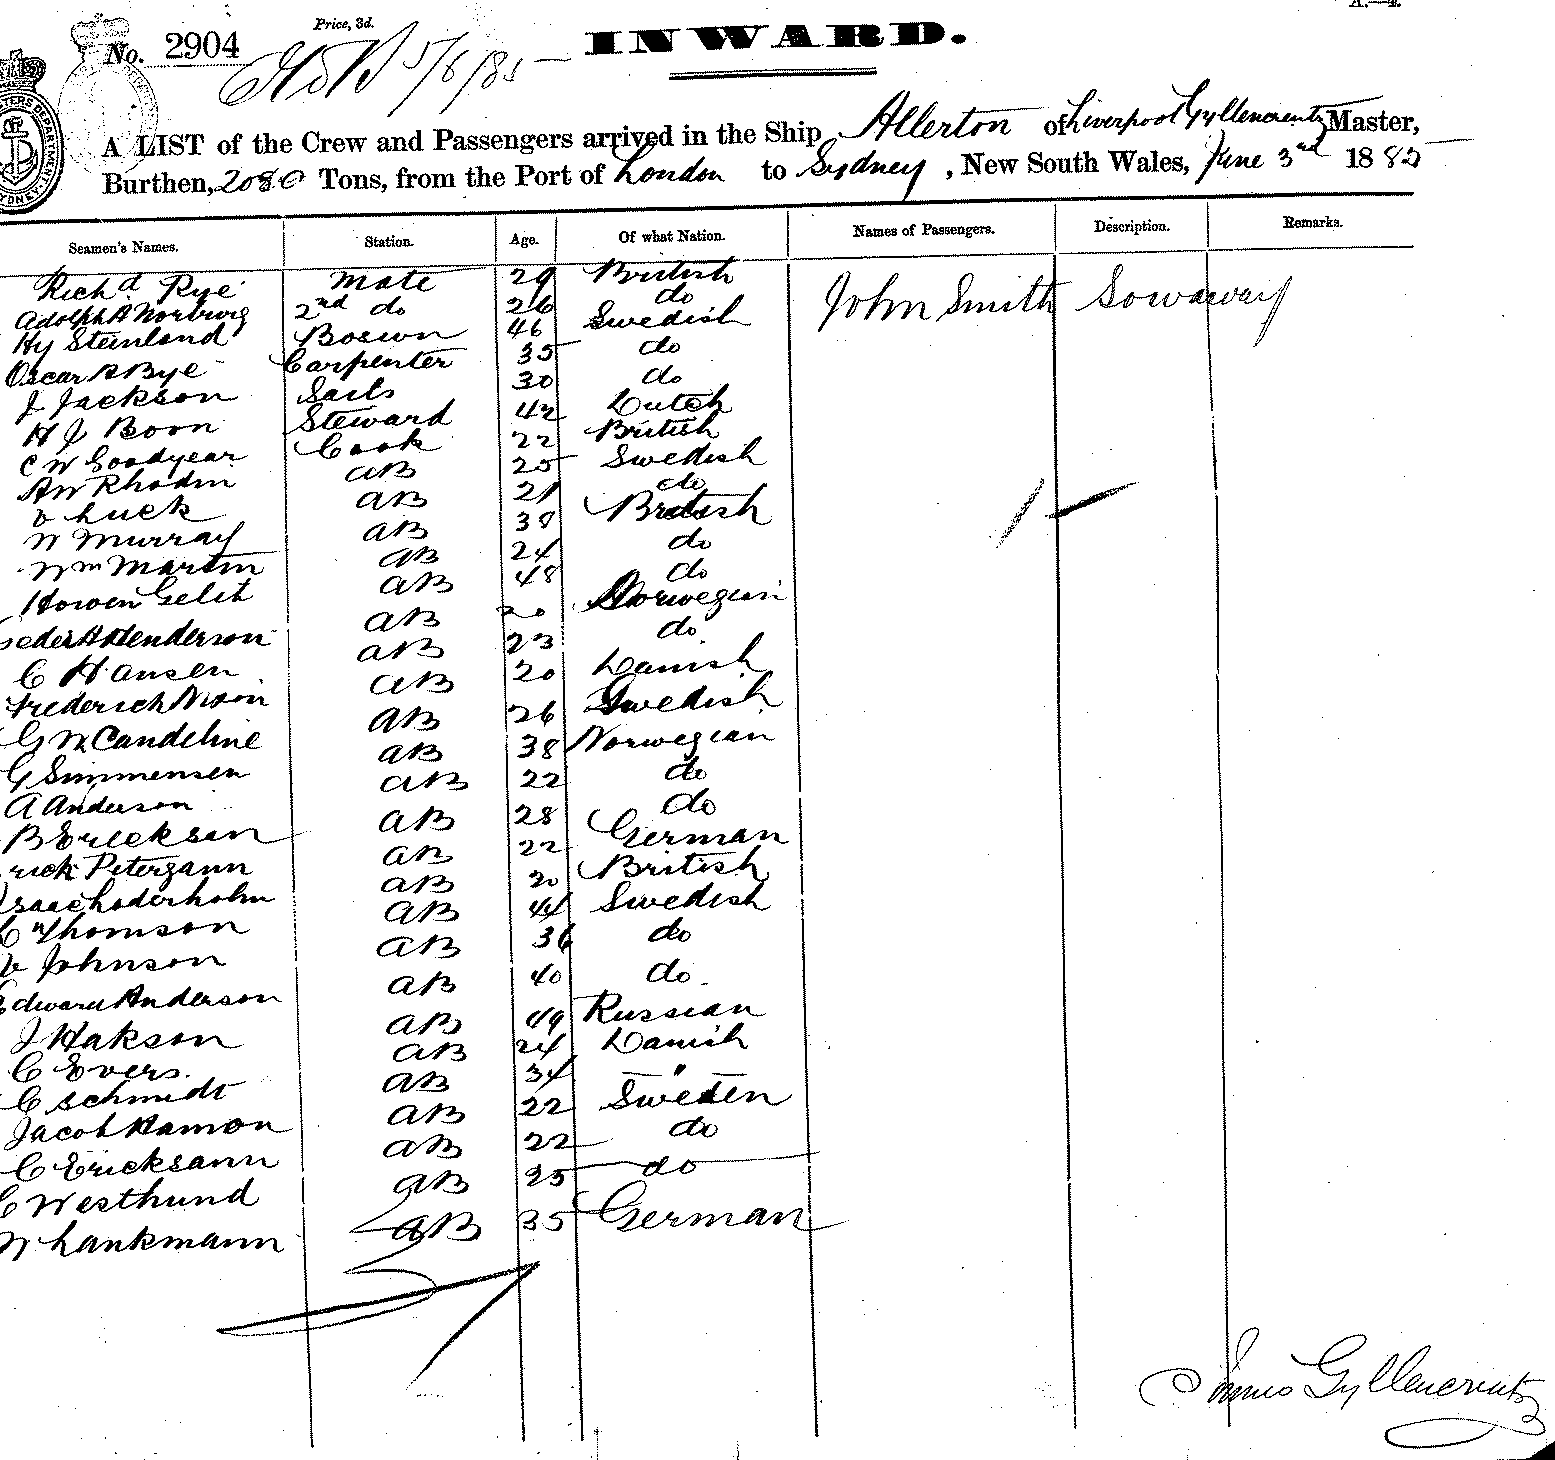 A.—4.
Price, 3d.
No. 2904
5/6/85
INWARD.
A LIST of the Crew and Passengers arrived in the Ship Allerton of Liverpool Gyllencrentz Master,
Burthen, 2080 Tons, from the Port of London to Sydney, New South Wales, June 3rd 1885
Seamen's Names. Station. Age. Of what Nation. Names of Passengers. Description. Remarks.
Richd Rye Mate 29 British John Smith Sowaway
Adolph A Norburg 2nd do 26 do
Hy Steinland Boswn 46 Swedish
Oscar A Bye Carpenter 35 do
J Jackson Sails 30 do
H J Boon Steward 42 Dutch
C W Goodyear Cook 22 British
AW Rhodin AB 25 Swedish
Luck AB 21 do
W Murray AB 38 British
Wm Martin AB 24 do
Howen Gelit AB 48 do
Henderson AB 20 Norwegian
C Hansen AB 23 do
Frederich Nixon AB 20 Danish
G W Candeline AB 26 Swedish
G Simmensen AB 38 Norwegian
A Anderson AB 22 do
B Erickson AB 28 do
rick Petersann AB 22 German
Isaac Loderholm AB 20 British
C Thomson AB 44 Swedish
Johnson AB 36 do
Edward Anderson AB 40 do
J Hakson AB 49 Russian
C Evers AB 24 Danish
C Schmidt AB 34 "
Jacob Hamon AB 22 Sweden
C Ericksann AB 22 do
C Westhund AB 25 do
W Lankmann AB 35 German
Gyllencrentz